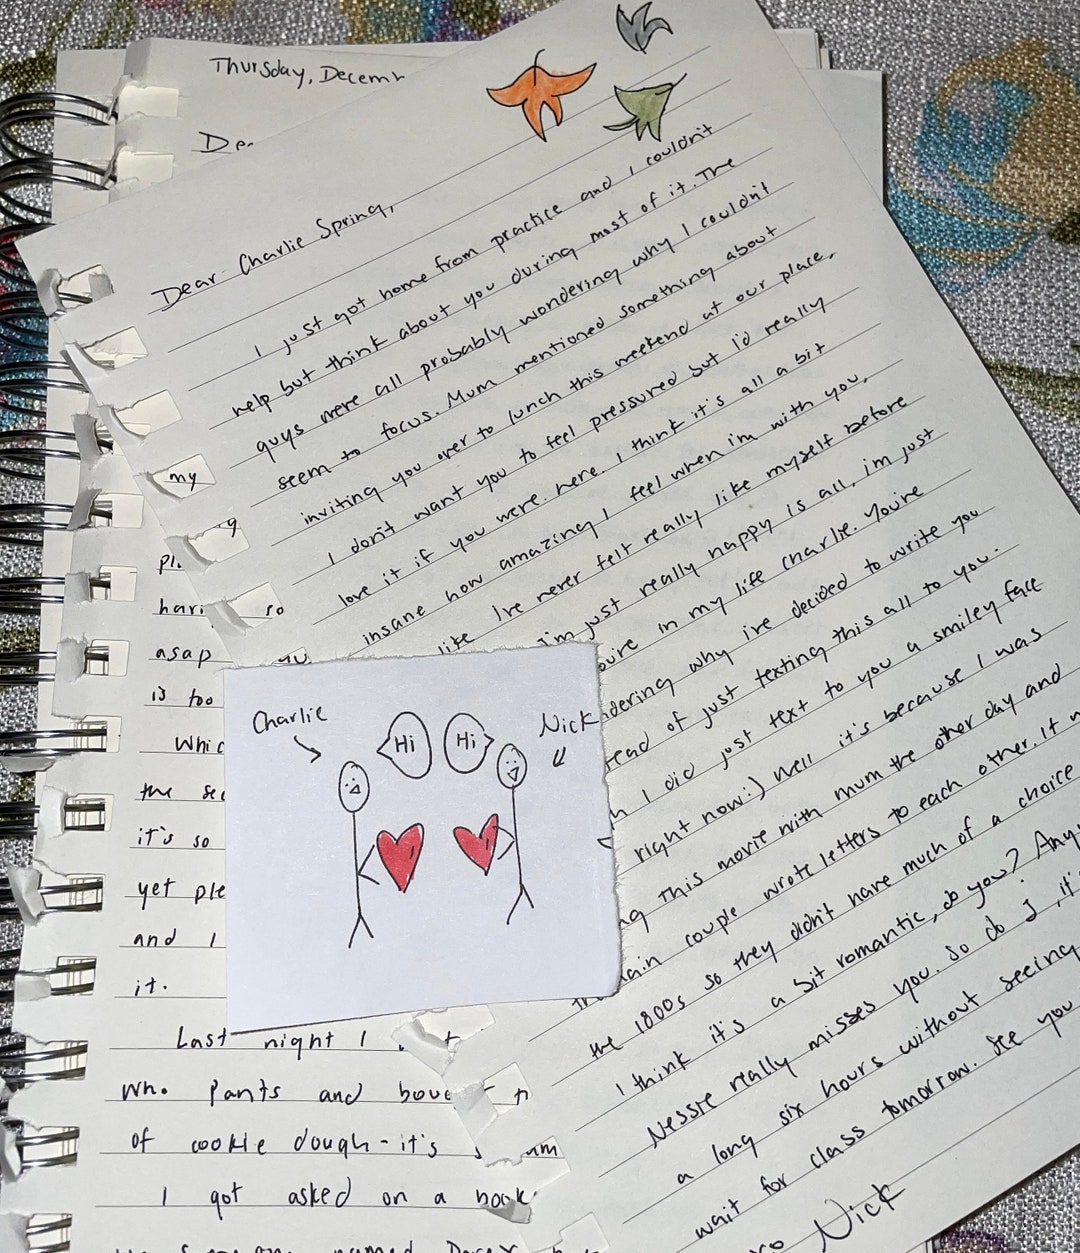 Thursday, Decem
De
Dear Charlie Spring,
I just got home from practice and I couldn't
help but think about you during most of it. The
guys were all probably wondering why I couldn't
seem to focus. Mum mentioned something about
inviting you over to lunch this weekend at our place.
I don't want you to feel pressured but I'd really
love it if you were here. I think it's all a bit
insane how amazing I feel when im with you.
like I've never felt really like myself before
I'm just really happy is all, im just
you're in my life Charlie. You're
ndering why ive decided to write you
ead of just texting this all to you.
h I did just text to you a smiley face
right now:) Well it's because I was
ng this movie with mum the other day and
main couple wrote letters to each other. It
the 1800s so they didn't have much of a choice
I think it's a bit romantic, do you? Any
Nessie really misses you. So do I, it
a long six hours without seeing
wait for class tomorrow. See you
xo Nick
Charlie
Nick
Hi
Hi
my
pl
hari so
asap
is too
Whic
the sec
it's so
yet ple
and I
it.
Last night I
who pants and
of cookie dough - it's
I got asked on a book
named